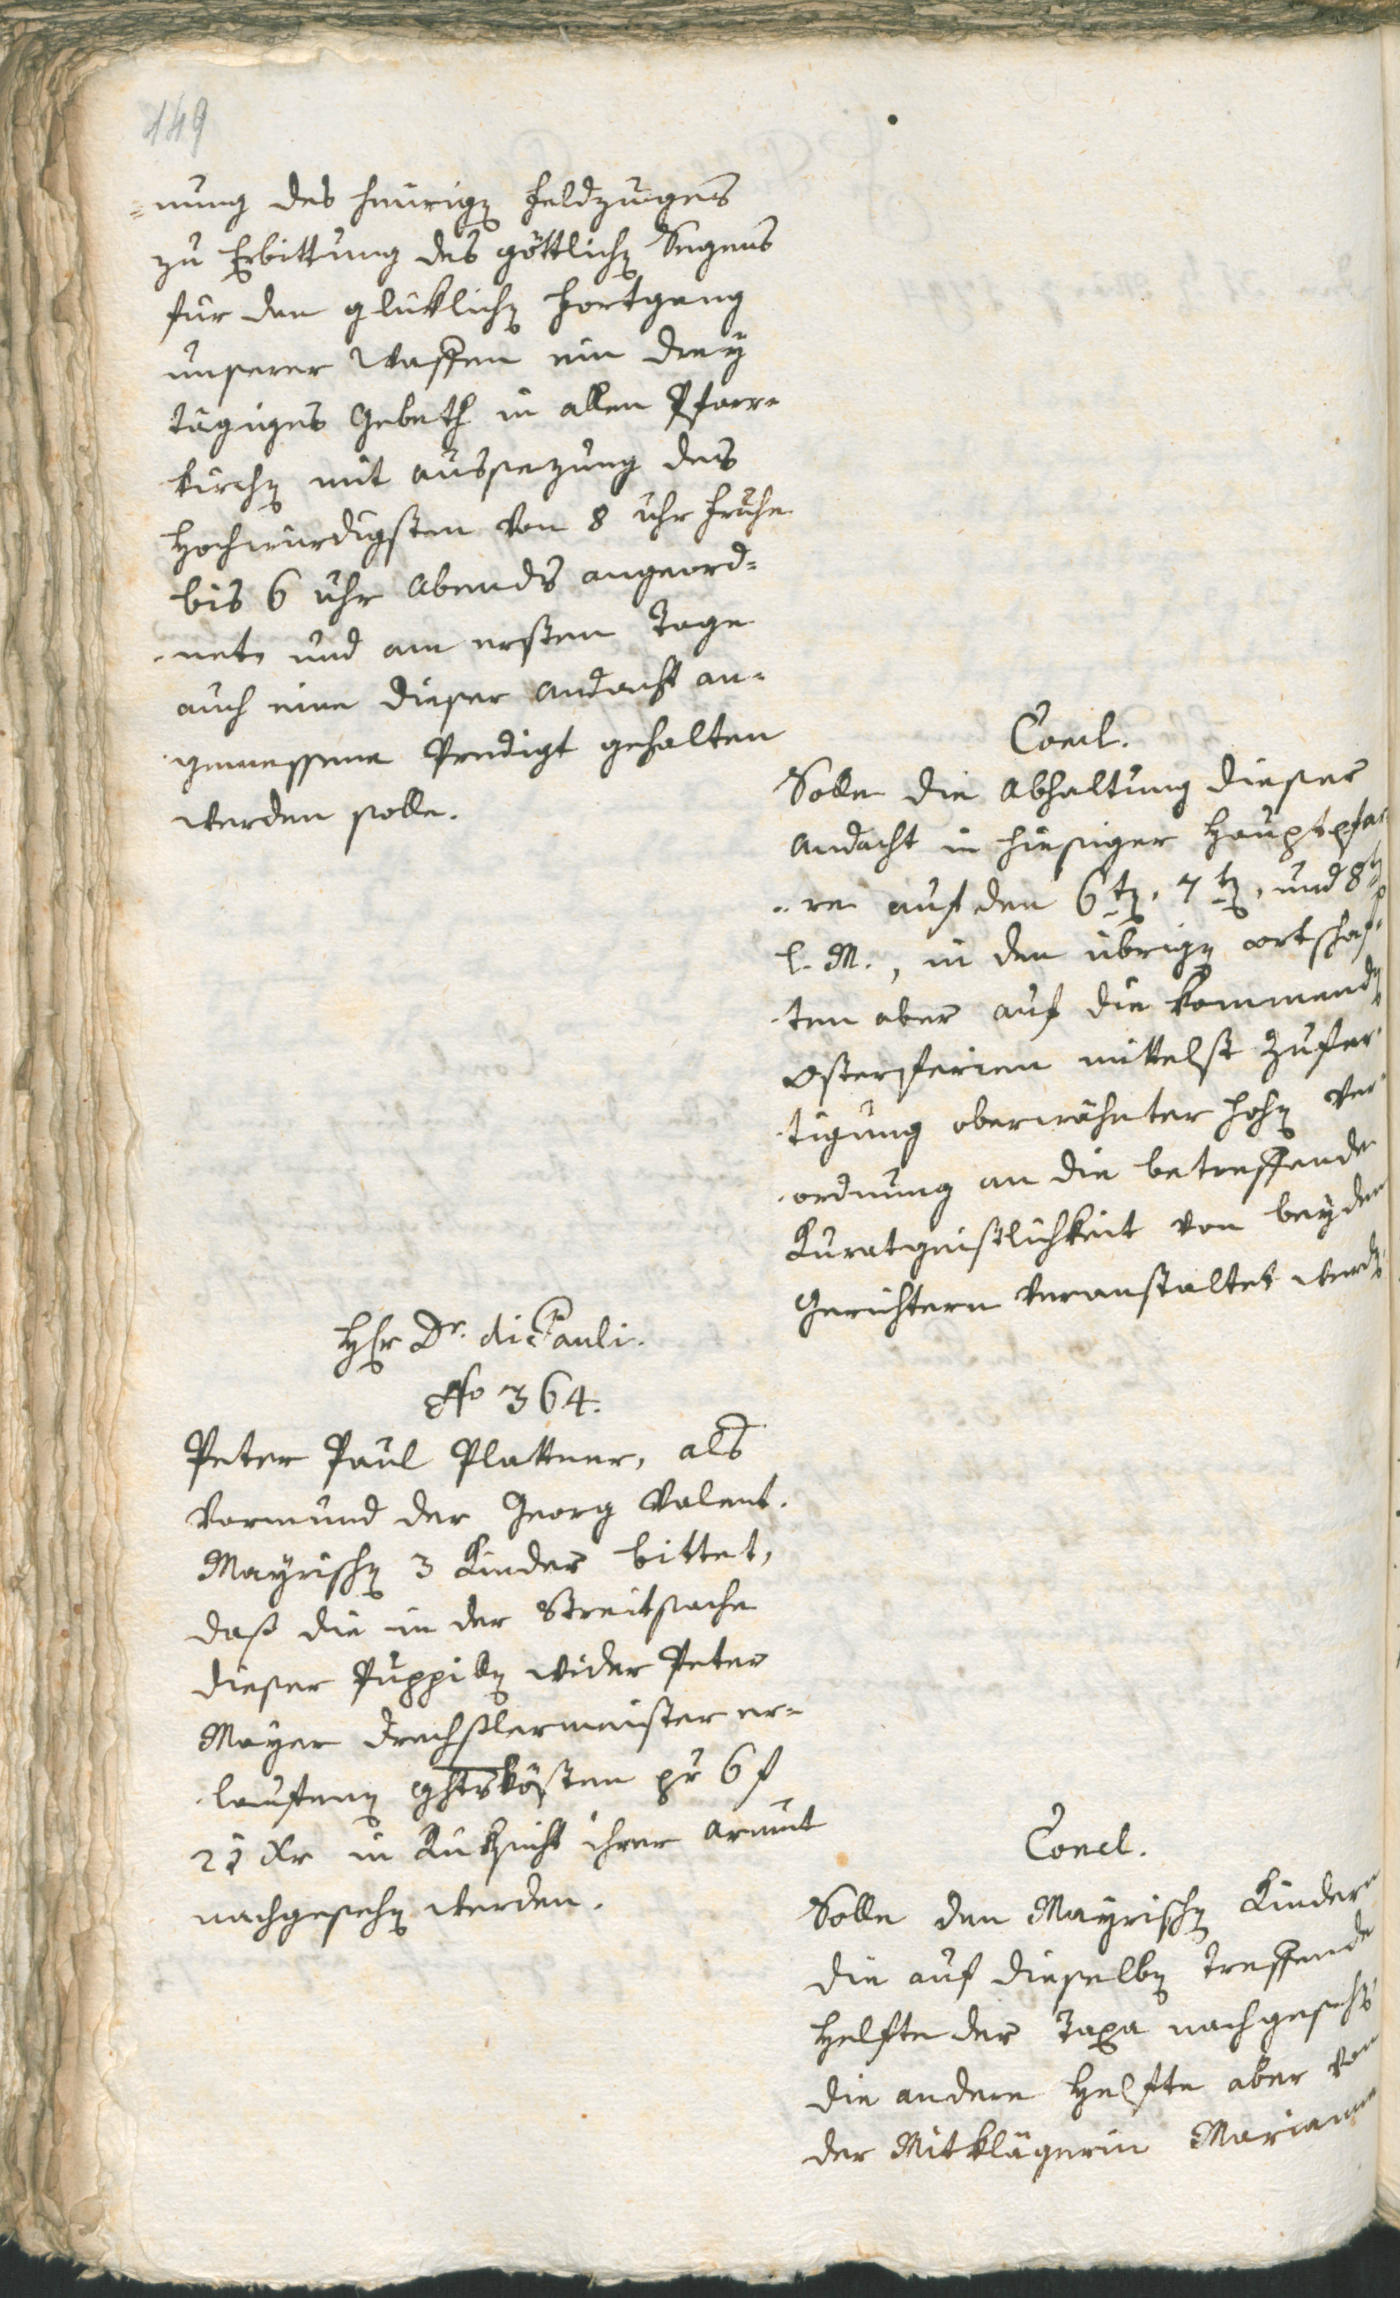 149
=nung des heurigen Feldzuges
zu Erbittung des göttlichen Segens
für den glüklichen Fortgang
unserer Waffen ein drey
tägiges Gebeth in allen Pfarr=
kirchen mit aussezung des
Hochwürdigsten von 8 Uhr Fruhe
bis 6 Uhr Abends angeord=
=net, und am ersten Tage
auch eine dieser Andacht an=
gemessene Predigt gehalten
werden solle.
Concl.
Solle die Abhaltung dieser
Andacht in hiesiger Hauptpfar
=re auf den 6ten, 7ten, und 8ten
l. M., in den übrigen ortschaf=
ten aber auf die kommenden
Osterferien mittelst Zufer=
tigung oberwähnter hohen Ver=
ordnung an die betreffende
Kuratgeistlichkeit von beyden
Gerichtern veranstaltet werden.
Hr Dr. di Pauli.
No 364.
Peter Paul Plattner, als
Vormund der Georg Valent.
Mayrischen 3 Kinder bittet,
daß die in der Streitsache
dieser Puppillen wider Peter
Mayer Drechslermeister er=
laufenen Ghtskösten pr 6 f
21 Xr in Rüksicht ihrer Armut
nachgesehen werden.
Concl.
Solle den Mayrischen Kindern
die auf dieselben treffende
Helfte der Taxa nachgesehen
die andere Helfte aber von
der Mitklägerin Marianna